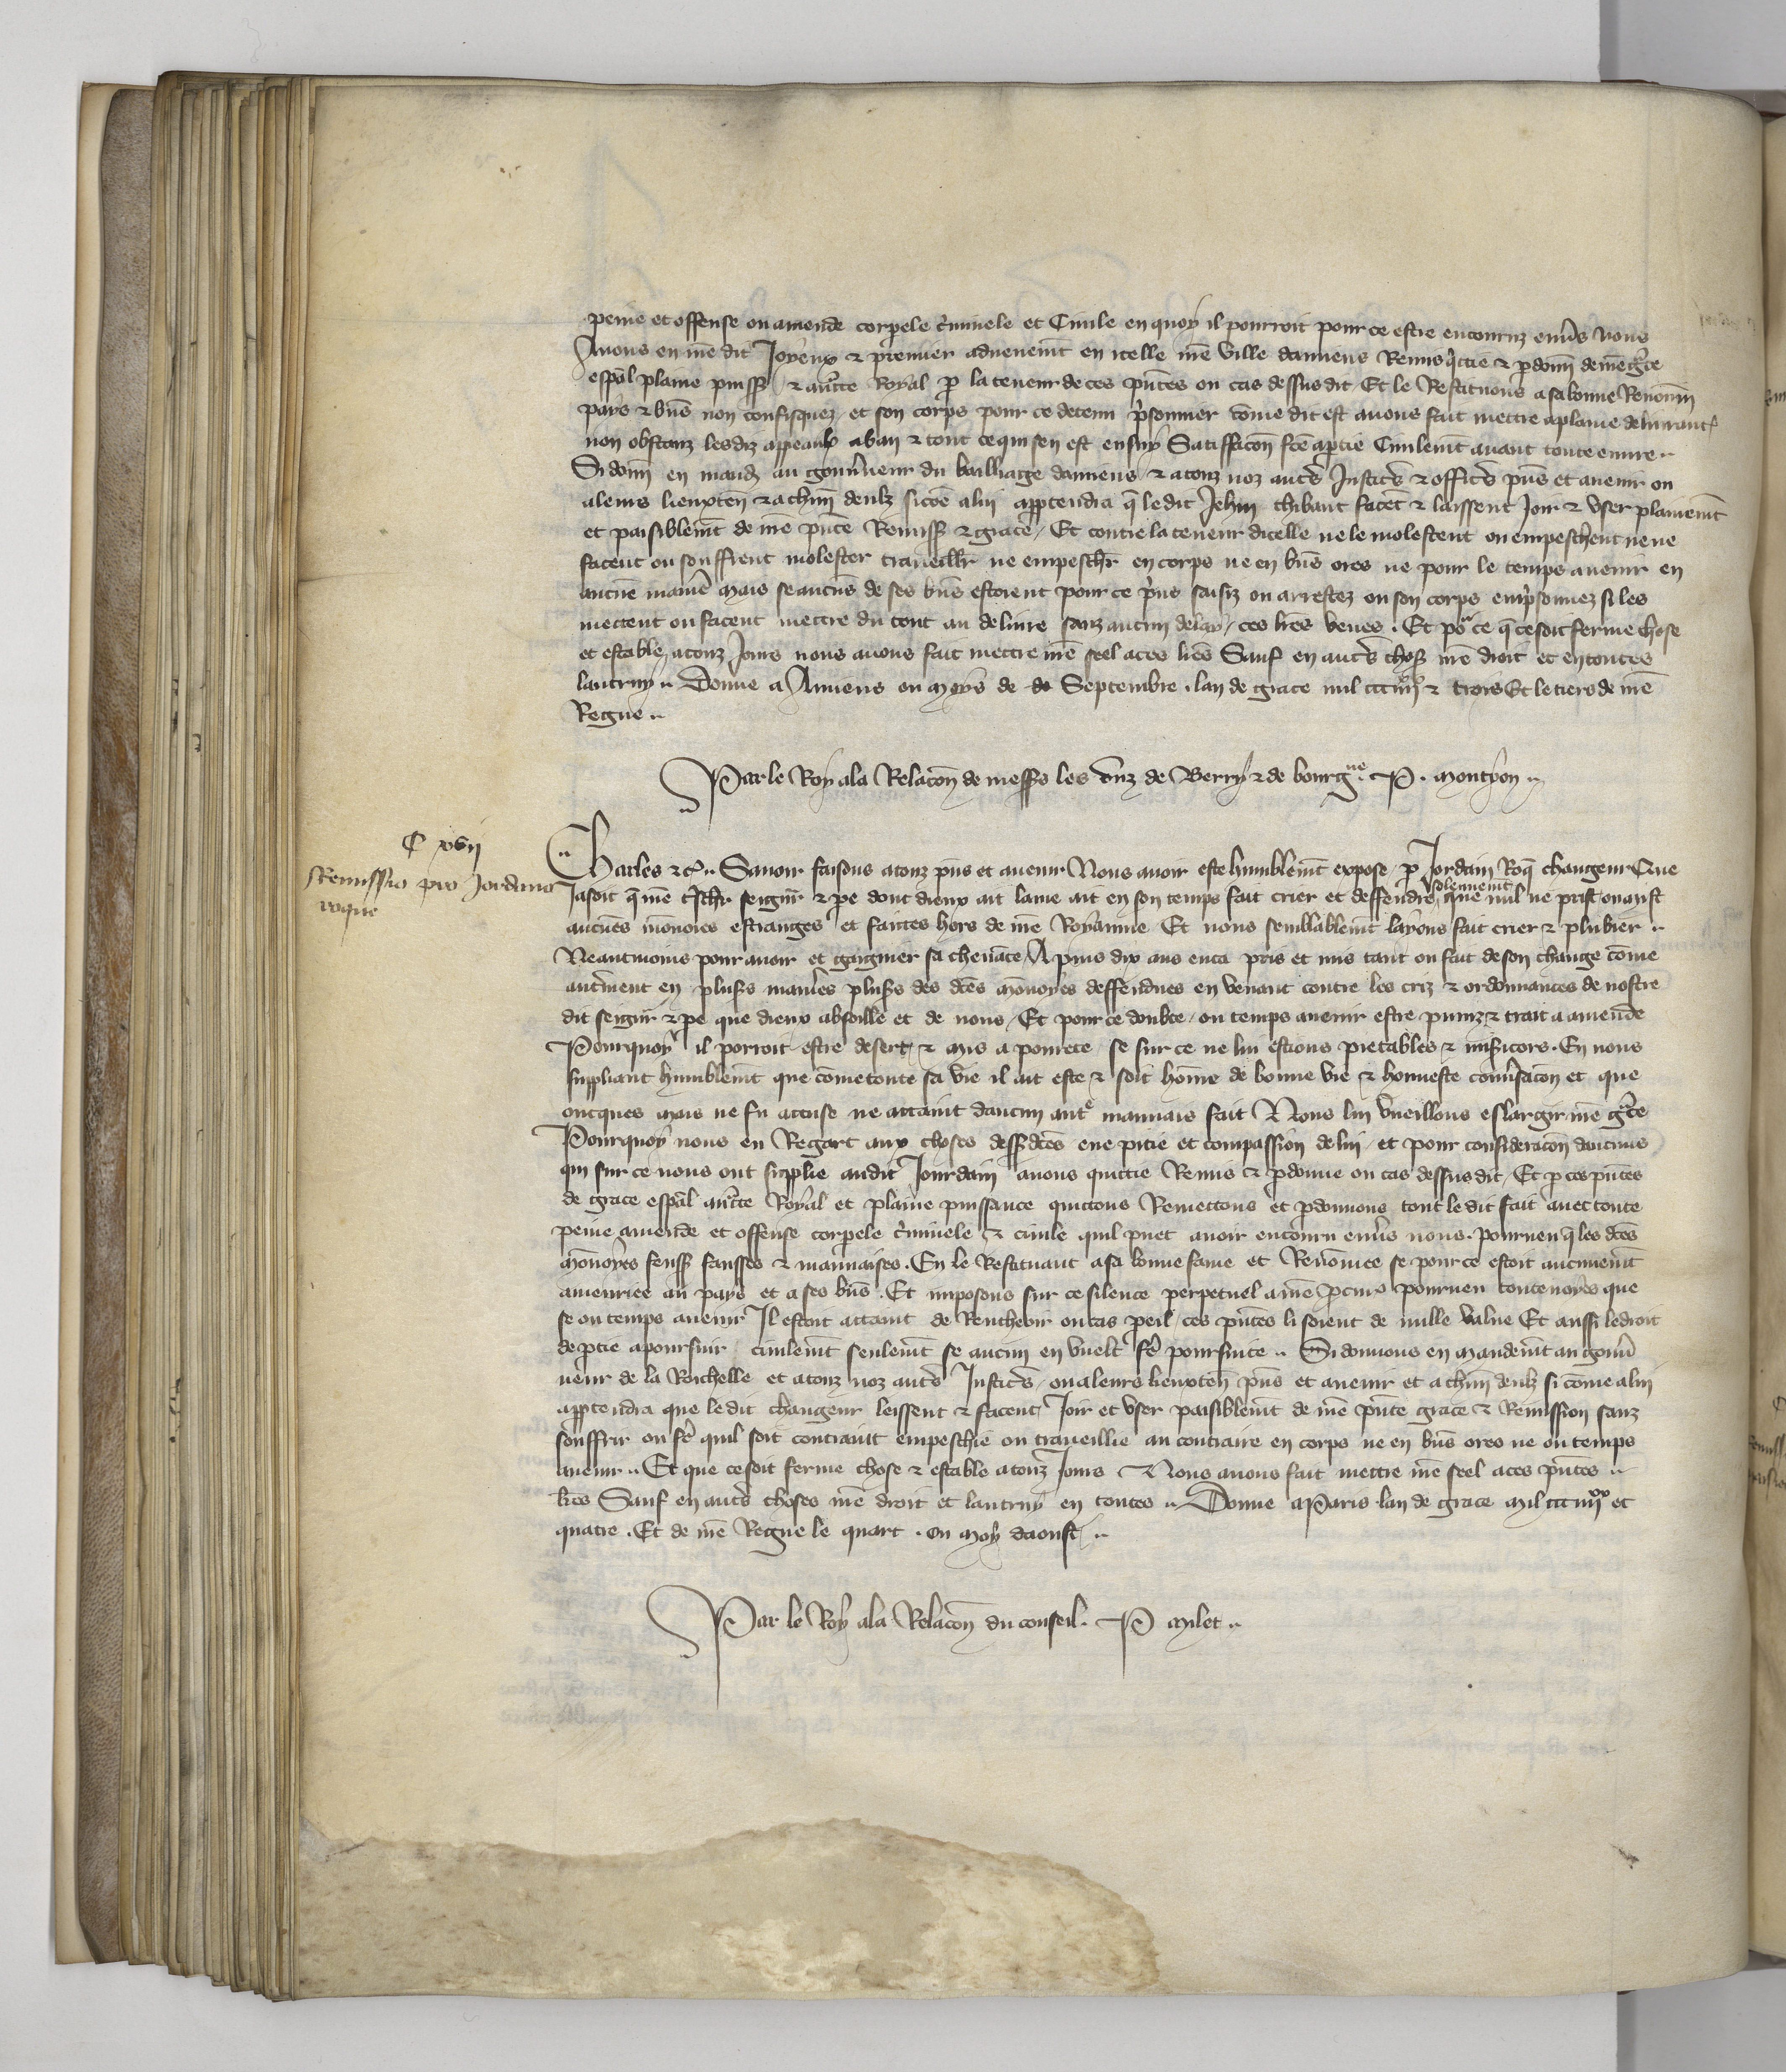 peine et offense ou amende corpele c'minele et Civile en quoy il pourroit pour ce estre encouruz envs Nous
Avons en nre dit Joyeux & premier advenemt en icelle nre ville damiens Remis qictie & pdonn de nre gce
espal plaine puiss & aucte Royal p la teneur de ces pntes ou cas dessus dit Et le Restituons a sa bonne Renomm
pays & bns non confisquez et son corps pour ce detenu p'sonnier come dit est avons fait mettre a plaine delivrance
non obstanz lesdiz appeaulx a ban & tout ce qui sen est ensuy Satisfacon fce a ptie Civilemt avant toute euvre
Si donn en mand au gouvneur du bailliage damiens & a touz noz autrs Justicrs & officrs pns et avenir ou
a leurs lieuxten & a chun deulz si coe a lui apptendra q le dit Jehan thibaut facet & laissent Joir & user plainemt
et paisiblemt de nre pnte Remiss & grace Et contre la teneur dicelle ne le molestent ou empeschent ne ne
facent ou souffrent molester traveillr ne empeschr en corps ne en bns ores ne pour le temps avenir en
aucune maniere Mais se aucuns de ses bns estoient pour ce p'ns saisiz ou arrestez ou son corps emp'sonnez si les
mettent ou facent mettre du tout au delivre sanz aucun delay ces lres veues . Et por ce q ce soit ferme chose
et estable a touz Jours nous avons fait mettre nre seel a ces lres Sauf en autrs chos nre droit et en toutes
lautruy Donne a Amiens ou moys de de Septembre . lan de grace mil ccc iiijxx & trois Et le tiers de nre
Regne
Par le Roy a la Relacon de messrs les ducz de Berry & de bourgne P . Montyon
C xvij
Remissio pro Jordano
roque
Charles &c Savoir faisons a touz pns et avenir Nous avoir este humblemt expose p Jordain Roq changeur Que
Jasoit q nre t'schr seignr & pe dont dieux ait lame ait en son temps fait crier et deffendre solennemt que nul ne prist ou meist
aucunes monoies estranges et faictes hors de nre Royaume Et nous semblablemt layons fait crier & plubier
Neantmoins pour avoir et gaignier sa chevance A puis dix ans enca pris et mis tant ou fait de son change come
autrement en plusrs manieres plusrs des dces monoyes deffendues en venant contre les criz & ordonnances de nostre
dit seignr & pe que dieux absoille et de nous Et pour ce doubte ou temps avenir estre puniz & trait a amende
Pourquoy il porroit estre desert & mis a povrete se sur ce ne lui estions pietables & misicors . En nous
suppliant humblemt que come toute sa vie il ait este & soit home de bonne vie & honneste conv'sacon et que
oncques mais ne fu accuse ne attaint daucun autre mauvais fait Nous lui vueillons eslargir nre gce
Pourquoy nous en Regart aux choses dessdces eue pitie et compassion de lui et pour consideracon daucuns
qui sur ce nous ont supplie audit Jourdain avons quictie Remis & pdonne ou cas dessus dit Et p ces pntes
de grace espal aucte Royal et plaine puissance quictons Remectons et pdonnons tout le dit fait avec toute
peine amende et offense corpele c'minele & civile quil puet avoir encouru envs nous . pourveu q les dces
monoyes feuss fausses & mauvaises . En le Restituant a sa bonne fame et Renomee se pour ce estoit aucunemt
amenriee au pays et a ses bns . Et imposons sur ce silence perpetuel a nre pcur pourveu toutevoyes que
se ou temps avenir Il estoit attaint de Rencheoir ou cas peil ces pntes li soient de nulle value Et aussi le droit
de ptie a poursuir civilemt seulemt se aucun en vuelt fe poursuite Si donnons en mandemt au gouv
neur de la Rochelle et a touz noz autrs Justicrs ou a leurs lieuxten pns et avenir et a chun deulz si come a lui
apptendra que le dit changeur leissent & facent Joir et user paisiblemt de nre pnte grace & Remission sanz
souffrir ou fe quil soit contraint empeschie ou traveillie au contraire en corps ne en bns ores ne ou temps
avenir Et que ce soit ferme chose & estable a touz Jours Nous avons fait mettre nre seel a ces pntes
lres Sauf en autrs choses nre droit et lautruy en toutes Donne a Paris lan de grace Mil ccc iiijxx et
quatre . Et de nre Regne le quart . ou moys daoust
Par le Roy a la Relacon du conseil . P Milet